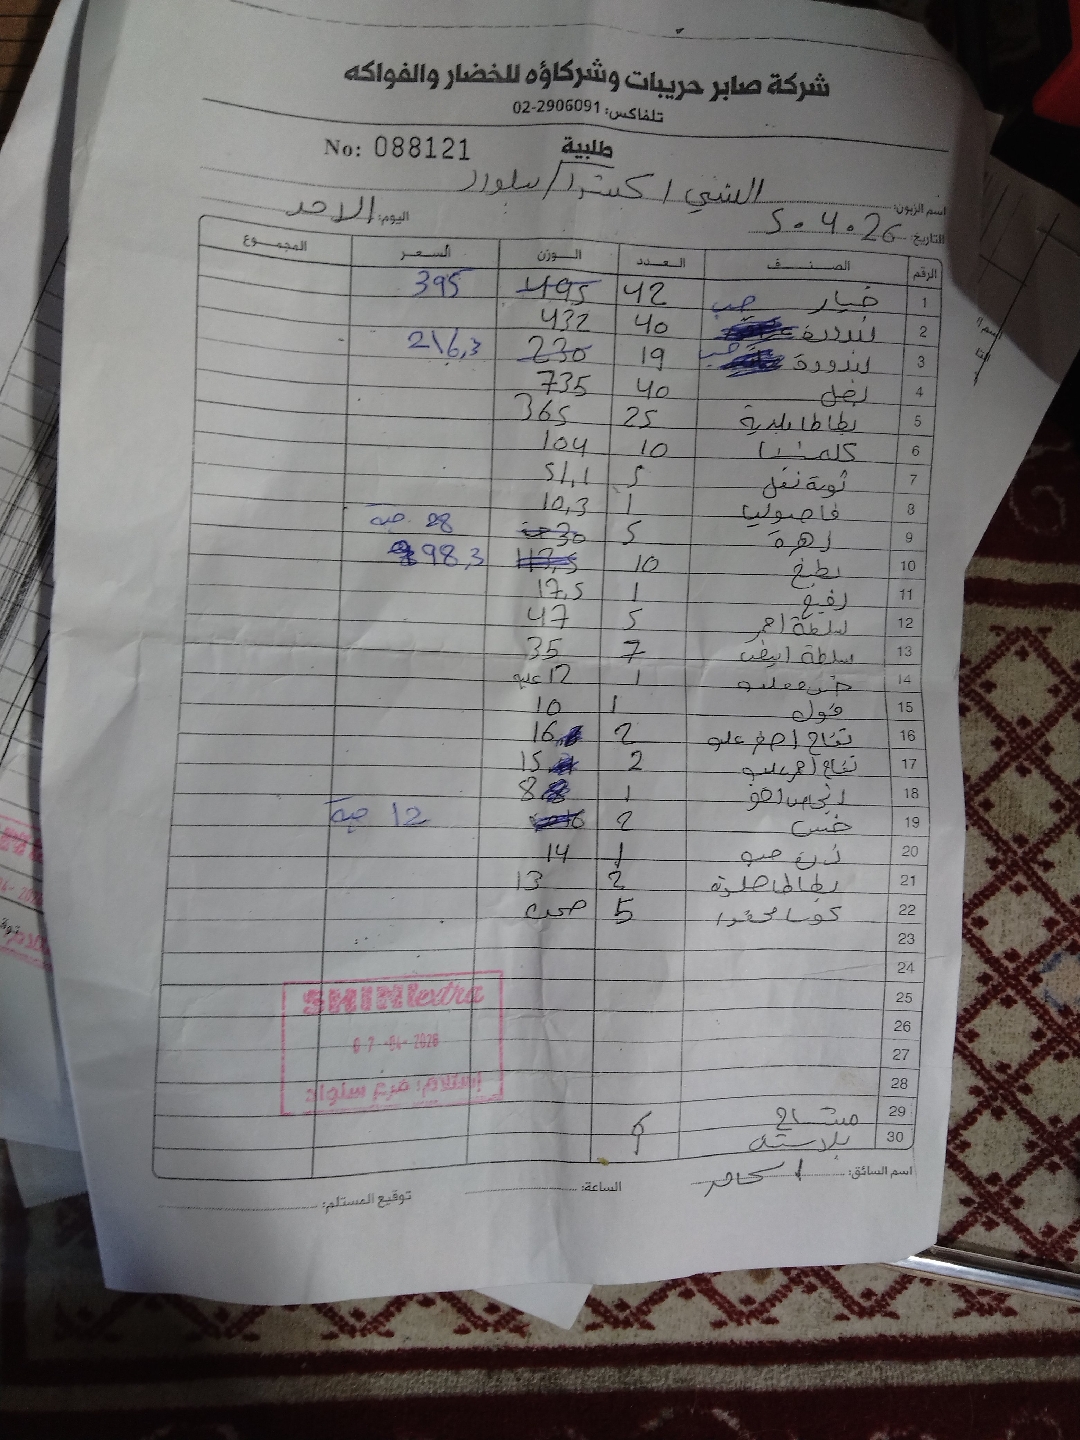 شركة صابر حريبات وشركاؤه للخضار والفواكه
تلفاكس: 02-2906091
طلبية
No: 088121
اسم الزبون: الشني اكسترا / سلواد
التاريخ: 5.4.26 اليوم: الاحد
الرقم الصنف العدد الوزن السعر المجموع
1 خيار حب 42 495 395
2 بندورة 40 432
3 بندورة 19 230 216,3
4 بصل 40 735
5 بطاطا بلدية 25 365
6 كلمنتينا 10 104
7 ثومة نفل 5 51,1
8 فاصوليا 1 10,3
9 زهرة 5 30 28 حبة
10 بطيخ 10 98,3
11 1 17,5
12 سلطة احمر 5 47
13 سلطة ابيض 7 35
14 1 12 علبة
15 فول 1 10
16 تفاح اصفر علبو 2 16
17 تفاح احمر علبو 2 15
18 1 8
19 خس 2 12 حبة
20 1 14
21 بطاطا حلوة 2 13
22 كوسا محفور 5 صحن
23
24
25
26
27
28
29 مشتاح
30 بلاستيك 6
SHINI extra
07-04-2026
استلام: فرع سلواد
اسم السائق: الساعة: توقيع المستلم: